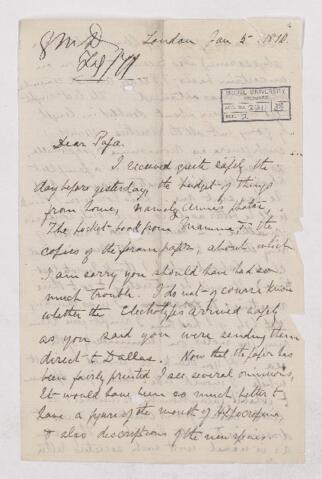 London Jan 5 1870.
McGILL UNIVERSITY
ARCHIVES
ACC. NO.
REF. 2
Dear Papa.
I received quite safely the
day before yesterday, the budget of things
from home, namely Anna's photos,
The pocket-book from Mamma, & the
copies of the foram paper, about which
I am sorry you should have had so
much trouble. I do not of course know
whether the Electrotypes arrived safely
as you said you were sending them
direct to Dallas. Now that the paper has
been fairly printed I see several omissions,
It would have been so much better to
have a figure of the mouth of
& also descriptions of the new species